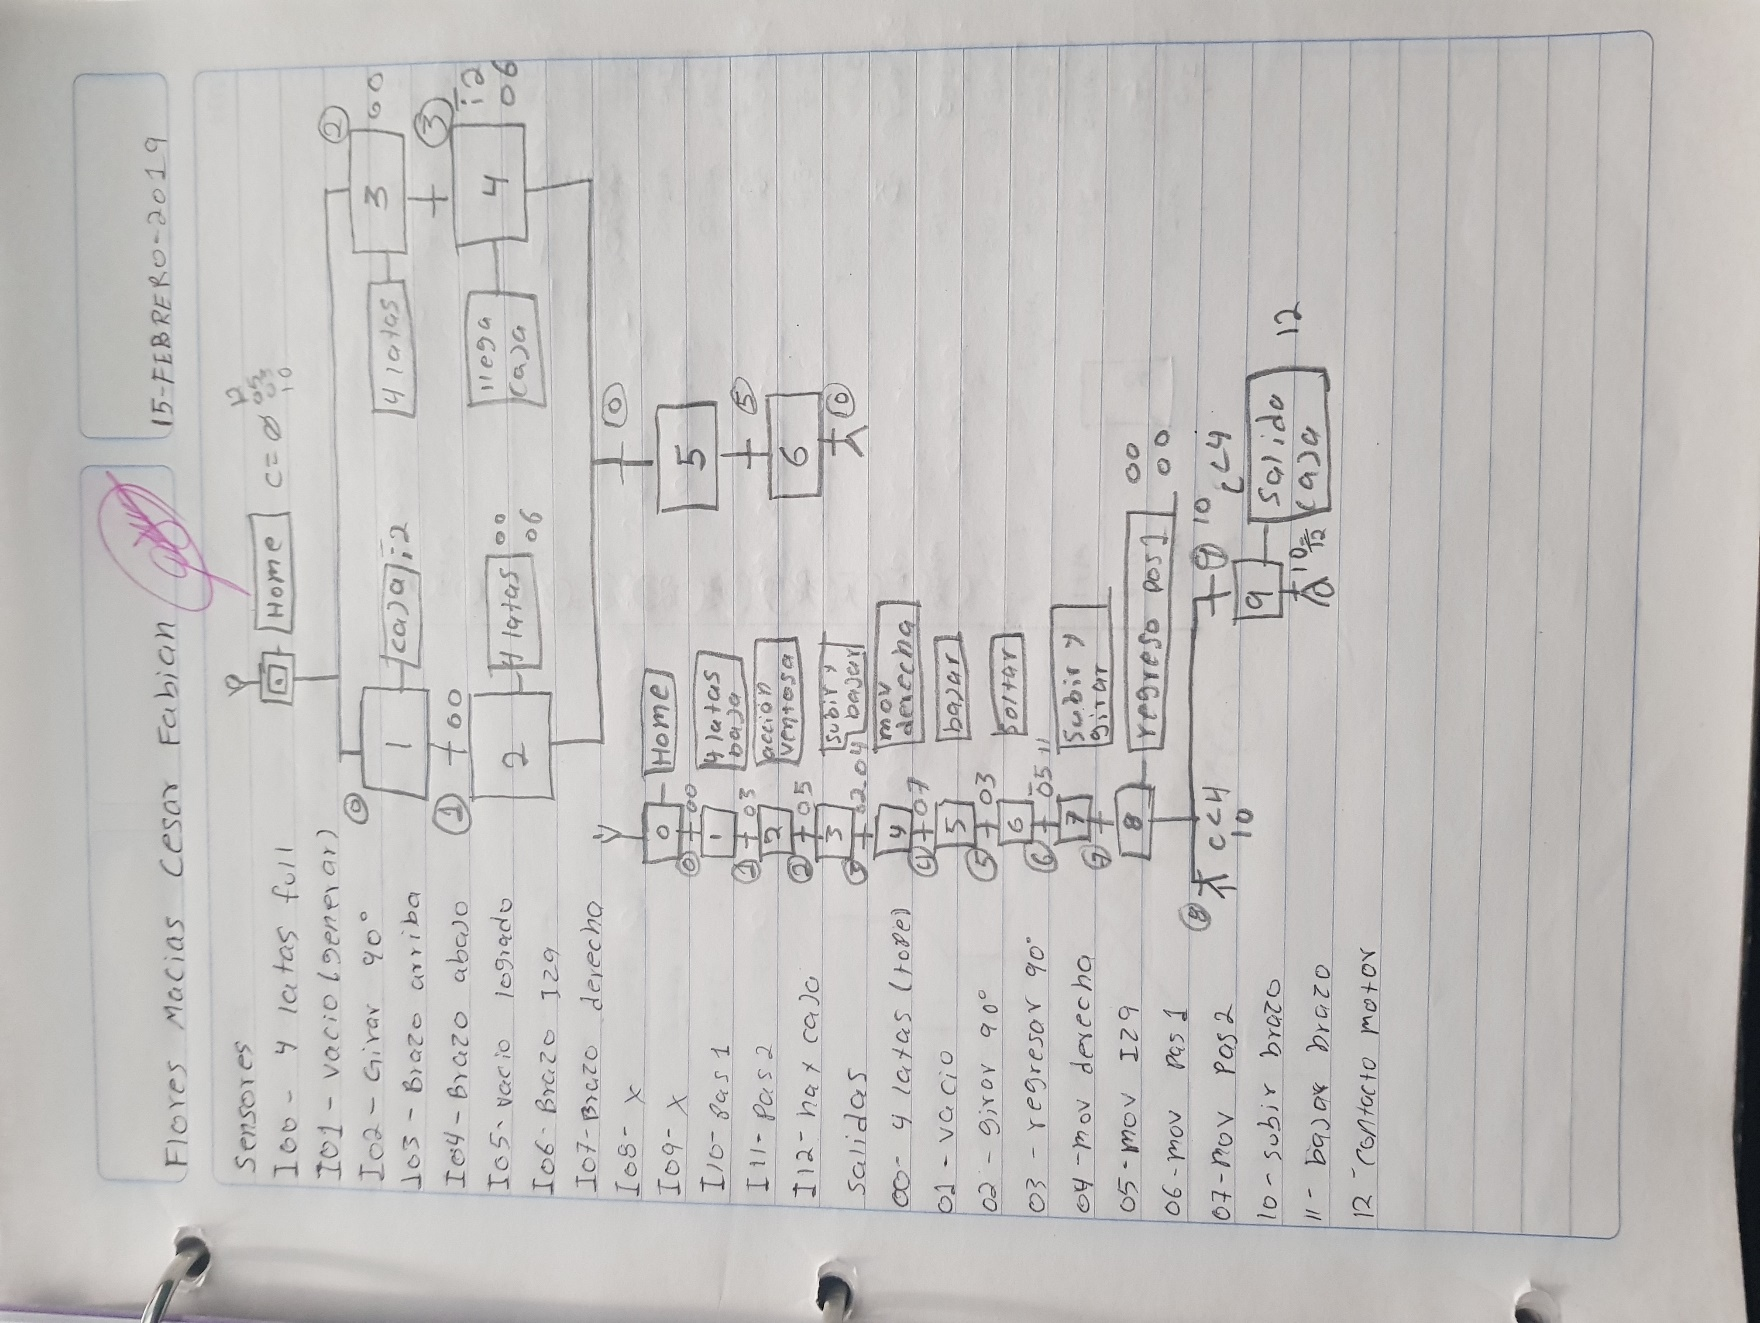 Flores Macias Cesar Fabian
15-FEBRERO-2019
Sensores
I00 - 4 latas full
I01 - vacio (generar)
I02 - Girar 90°
I03 - Brazo arriba
I04 - Brazo abajo
I05 - vacio logrado
I06 - Brazo Izq
I07 - Brazo derecha
I08 - x
I09 - x
I10 - Pas 1
I11 - Pas 2
I12 - hay caja
Salidas
00 - 4 latas (tope)
01 - vacio
02 - girar 90°
03 - regresar 90°
04 - mov derecha
05 - mov Izq
06 - mov pas1
07 - mov pas2
10 - subir brazo
11 - bajar brazo
12 - contacto motor
0 Home C=0 12
10
0
1 caja i2
1 00
2 4 latas 00
06
2
3 4 latas 00
3
4 llega caja i2
06
0
5
5
6
0
0 Home
0 00
1 4 latas baja
1 03
2 accion ventosa
2 05
3 subir y bajar
3 02 04
4 mov derecha
4 07
5 bajar
5 03
6 soltar
6 05 11
7 subir y girar
7
8 regreso pos1 00
00
8 C<4
10
9 10 C<4
9 Salida caja 12
10 12